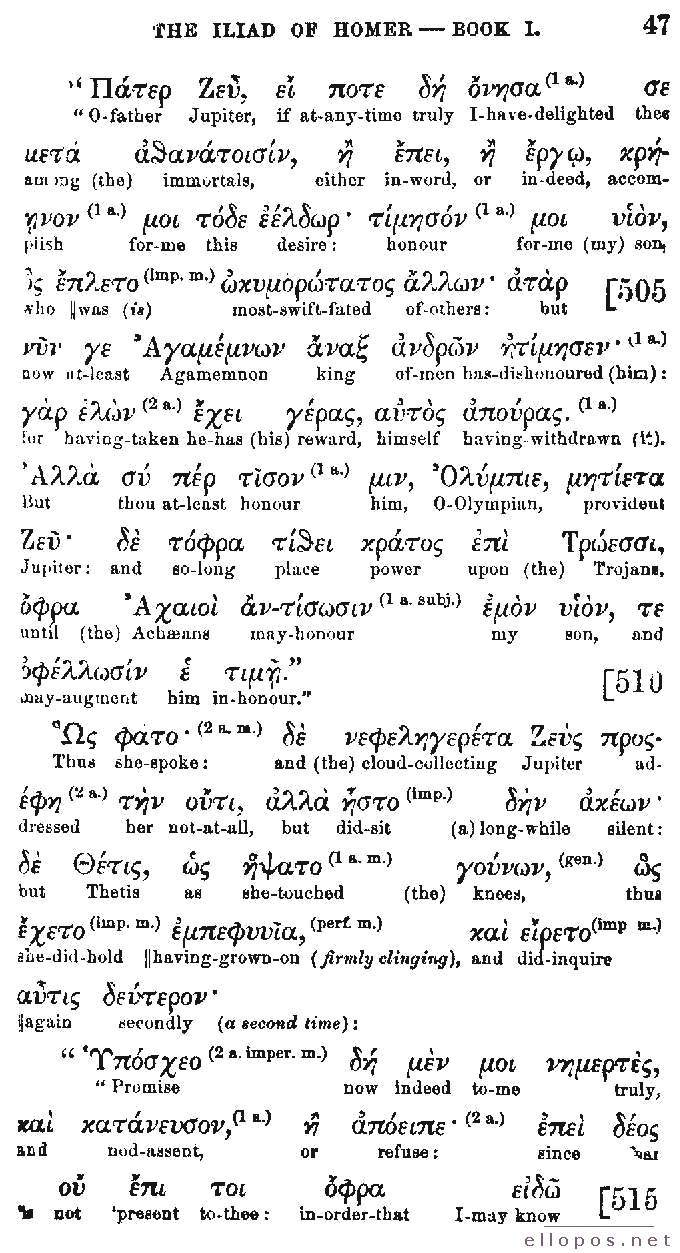 THE ILIAD OF HOMER — BOOK I. 47
“Πάτερ Ζεῦ, εἴ ποτε δή ὄνησα (1 a.) σε
“O-father Jupiter, if at-any-time truly I-have-delighted thee
μετά ἀϑανάτοισίν, ἢ ἔπει, ἢ ἔργῳ, κρή-
among (the) immortals, either in-word, or in-deed, accom-
ηνον (1 a.) μοι τόδε ἐέλδωρ · τίμησόν (1 a.) μοι υἱὸν,
plish for-me this desire: honour for-me (my) son,
ὃς ἔπλετο (imp. m.) ὠκυμορώτατος ἄλλων · ἀτὰρ [505
who ||was (is) most-swift-fated of-others: but
νῦν γε Ἀγαμέμνων ἄναξ ἀνδρῶν ἠτίμησεν · (1 a.)
now at-least Agamemnon king of-men has-dishonoured (him):
γὰρ ἑλὼν (2 a.) ἔχει γέρας, αὐτὸς ἀπούρας. (1 a.)
for having-taken he-has (his) reward, himself having-withdrawn (it).
Ἀλλὰ σύ πέρ τῖσον (1 a.) μιν, Ὀλύμπιε, μητίετα
But thou at-least honour him, O-Olympian, provident
Ζεῦ · δὲ τόφρα τίϑει κράτος ἐπὶ Τρώεσσι,
Jupiter: and so-long place power upon (the) Trojans,
ὄφρα Ἀχαιοὶ ἂν-τίσωσιν (1 a. subj.) ἐμὸν υἱὸν, τε
until (the) Achæans may-honour my son, and
ὀφέλλωσίν ἑ τιμῇ.” [510
may-augment him in-honour.”
Ὣς φάτο · (2 a. m.) δὲ νεφεληγερέτα Ζεὺς προς-
Thus she-spoke: and (the) cloud-collecting Jupiter ad-
έφη (2 a.) τὴν οὔτι, ἀλλὰ ἧστο (imp.) δὴν ἀκέων ·
dressed her not-at-all, but did-sit (a) long-while silent:
δὲ Θέτις, ὡς ἥψατο (1 a. m.) γούνων, (gen.) ὣς
but Thetis as she-touched (the) knees, thus
ἔχετο (imp. m.) ἐμπεφυυῖα, (perf. m.) καὶ εἴρετο (imp m.)
she-did-hold ||having-grown-on (firmly clinging), and did-inquire
αὖτις δεύτερον ·
||again secondly (a second time):
“Ὑπόσχεο (2 a. imper. m.) δή μὲν μοι νημερτὲς,
“Promise now indeed to-me truly,
καὶ κατάνευσον, (1 a.) ἢ ἀπόειπε · (2 a.) ἐπεὶ δέος
and nod-assent, or refuse: since fear
οὔ ἔπι τοι ὄφρα εἰδῶ [515
is not ‘present to-thee: in-order-that I-may know
ellopos.net